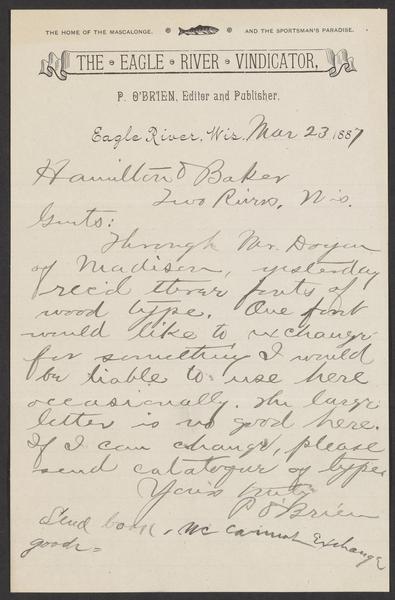 THE HOME OF THE MASCALONGE. AND THE SPORTSMAN'S PARADISE.
THE EAGLE RIVER VINDICATOR,
P. O'BRIEN, Editor and Publisher.
Eagle River, Wis. Mar 23 1887
Hamilton & Baker
Two Rivers, Wis.
Gents:
Through Mr. Doyon
of Madison, yesterday
rec'd three fonts of
wood type. One font
would like to exchange
for something I would
be liable to use here
occasionally. The large
letter is no good here.
If I can change, please
send catalogue of type
Yours truly
P O'Brien
Send book, we cannot exchange
goods =